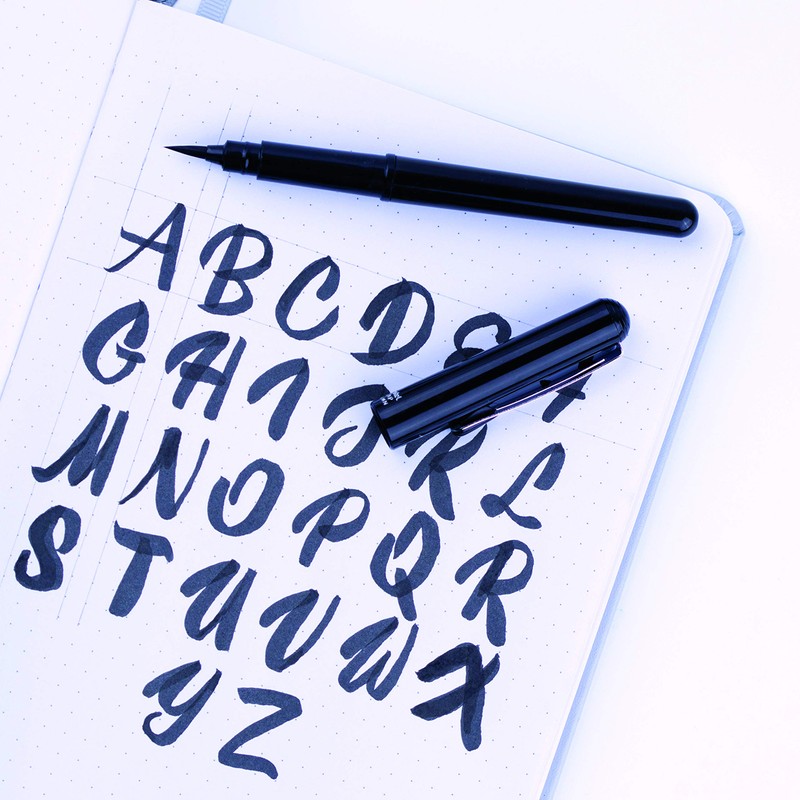 ABCDE
GHIJKL
MNOPQR
STUVWX
YZ